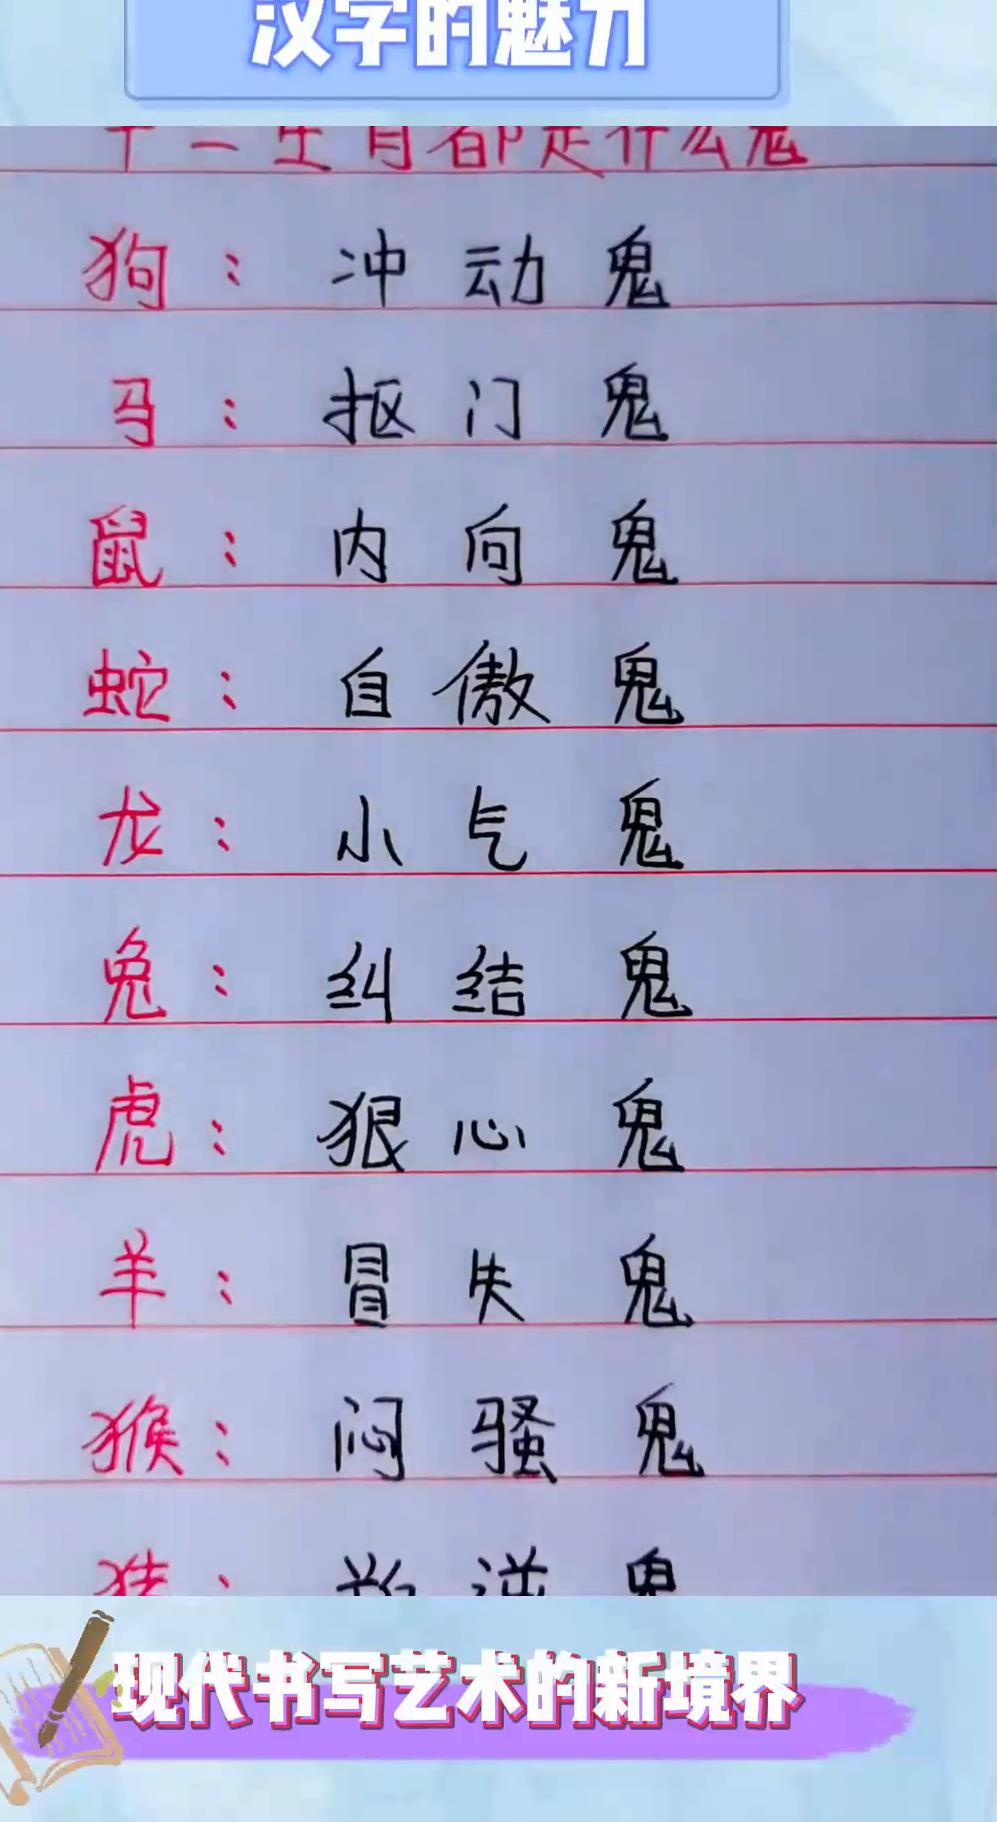 汉字的魅力
十二生肖都是什么鬼
狗：冲动鬼
马：抠门鬼
鼠：内向鬼
蛇：自傲鬼
龙：小气鬼
兔：纠结鬼
虎：狠心鬼
羊：冒失鬼
猴：闷骚鬼
猪：叛逆鬼
现代书写艺术的新境界